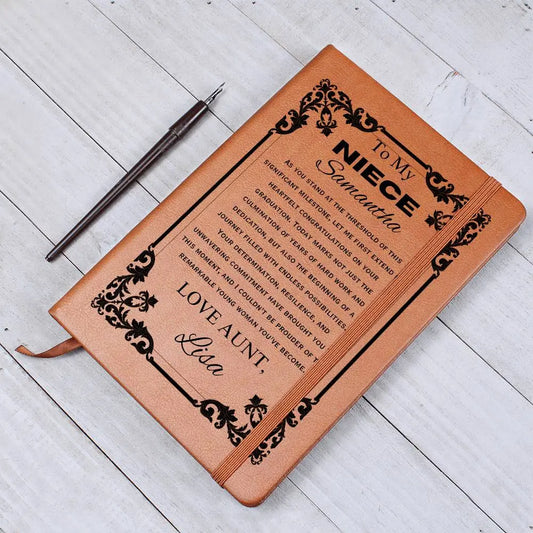 To My
NIECE
Samantha
AS YOU STAND AT THE THRESHOLD OF THIS
SIGNIFICANT MILESTONE, LET ME FIRST EXTEND
HEARTFELT CONGRATULATIONS ON YOUR
GRADUATION. TODAY MARKS NOT JUST THE
CULMINATION OF YEARS OF HARD WORK AND
DEDICATION, BUT ALSO THE BEGINNING OF A
JOURNEY FILLED WITH ENDLESS POSSIBILITIES.
YOUR DETERMINATION, RESILIENCE, AND
UNWAVERING COMMITMENT HAVE BROUGHT YOU
THIS MOMENT, AND I COULDN'T BE PROUDER OF T
REMARKABLE YOUNG WOMAN YOU'VE BECOME.
LOVE AUNT,
Lisa